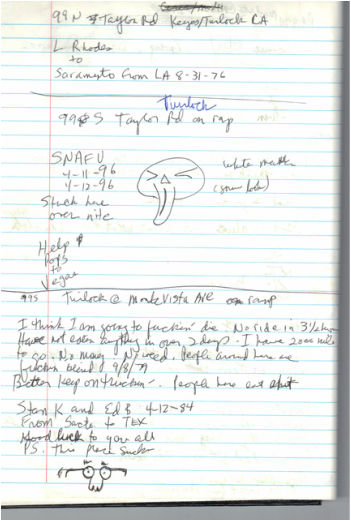 99 N Taylor Rd Keyes/Turlock CA
L Rhodes
to
Saramento from LA 8-31-76
Turlock
99 S Taylor Rd on rap
SNAFU
4-11-96
4-12-96
Stuck here
over nite
white matter
Help
Pops
to
Vegas
99S Turlock @ Monte Vista Ave on ramp
I think I am going to fuckin' die. No ride in 3½
Have not eaten anything in over 2 days. I have 2000 mile
to go. No money. No weed. People around here are
fuckin blind! 9/8/79
Better keep on truckin-. People here eat shit
Stan K and Ed B 4-12-84
From Sacto to TEX
Good luck to you all
PS. This place sucks